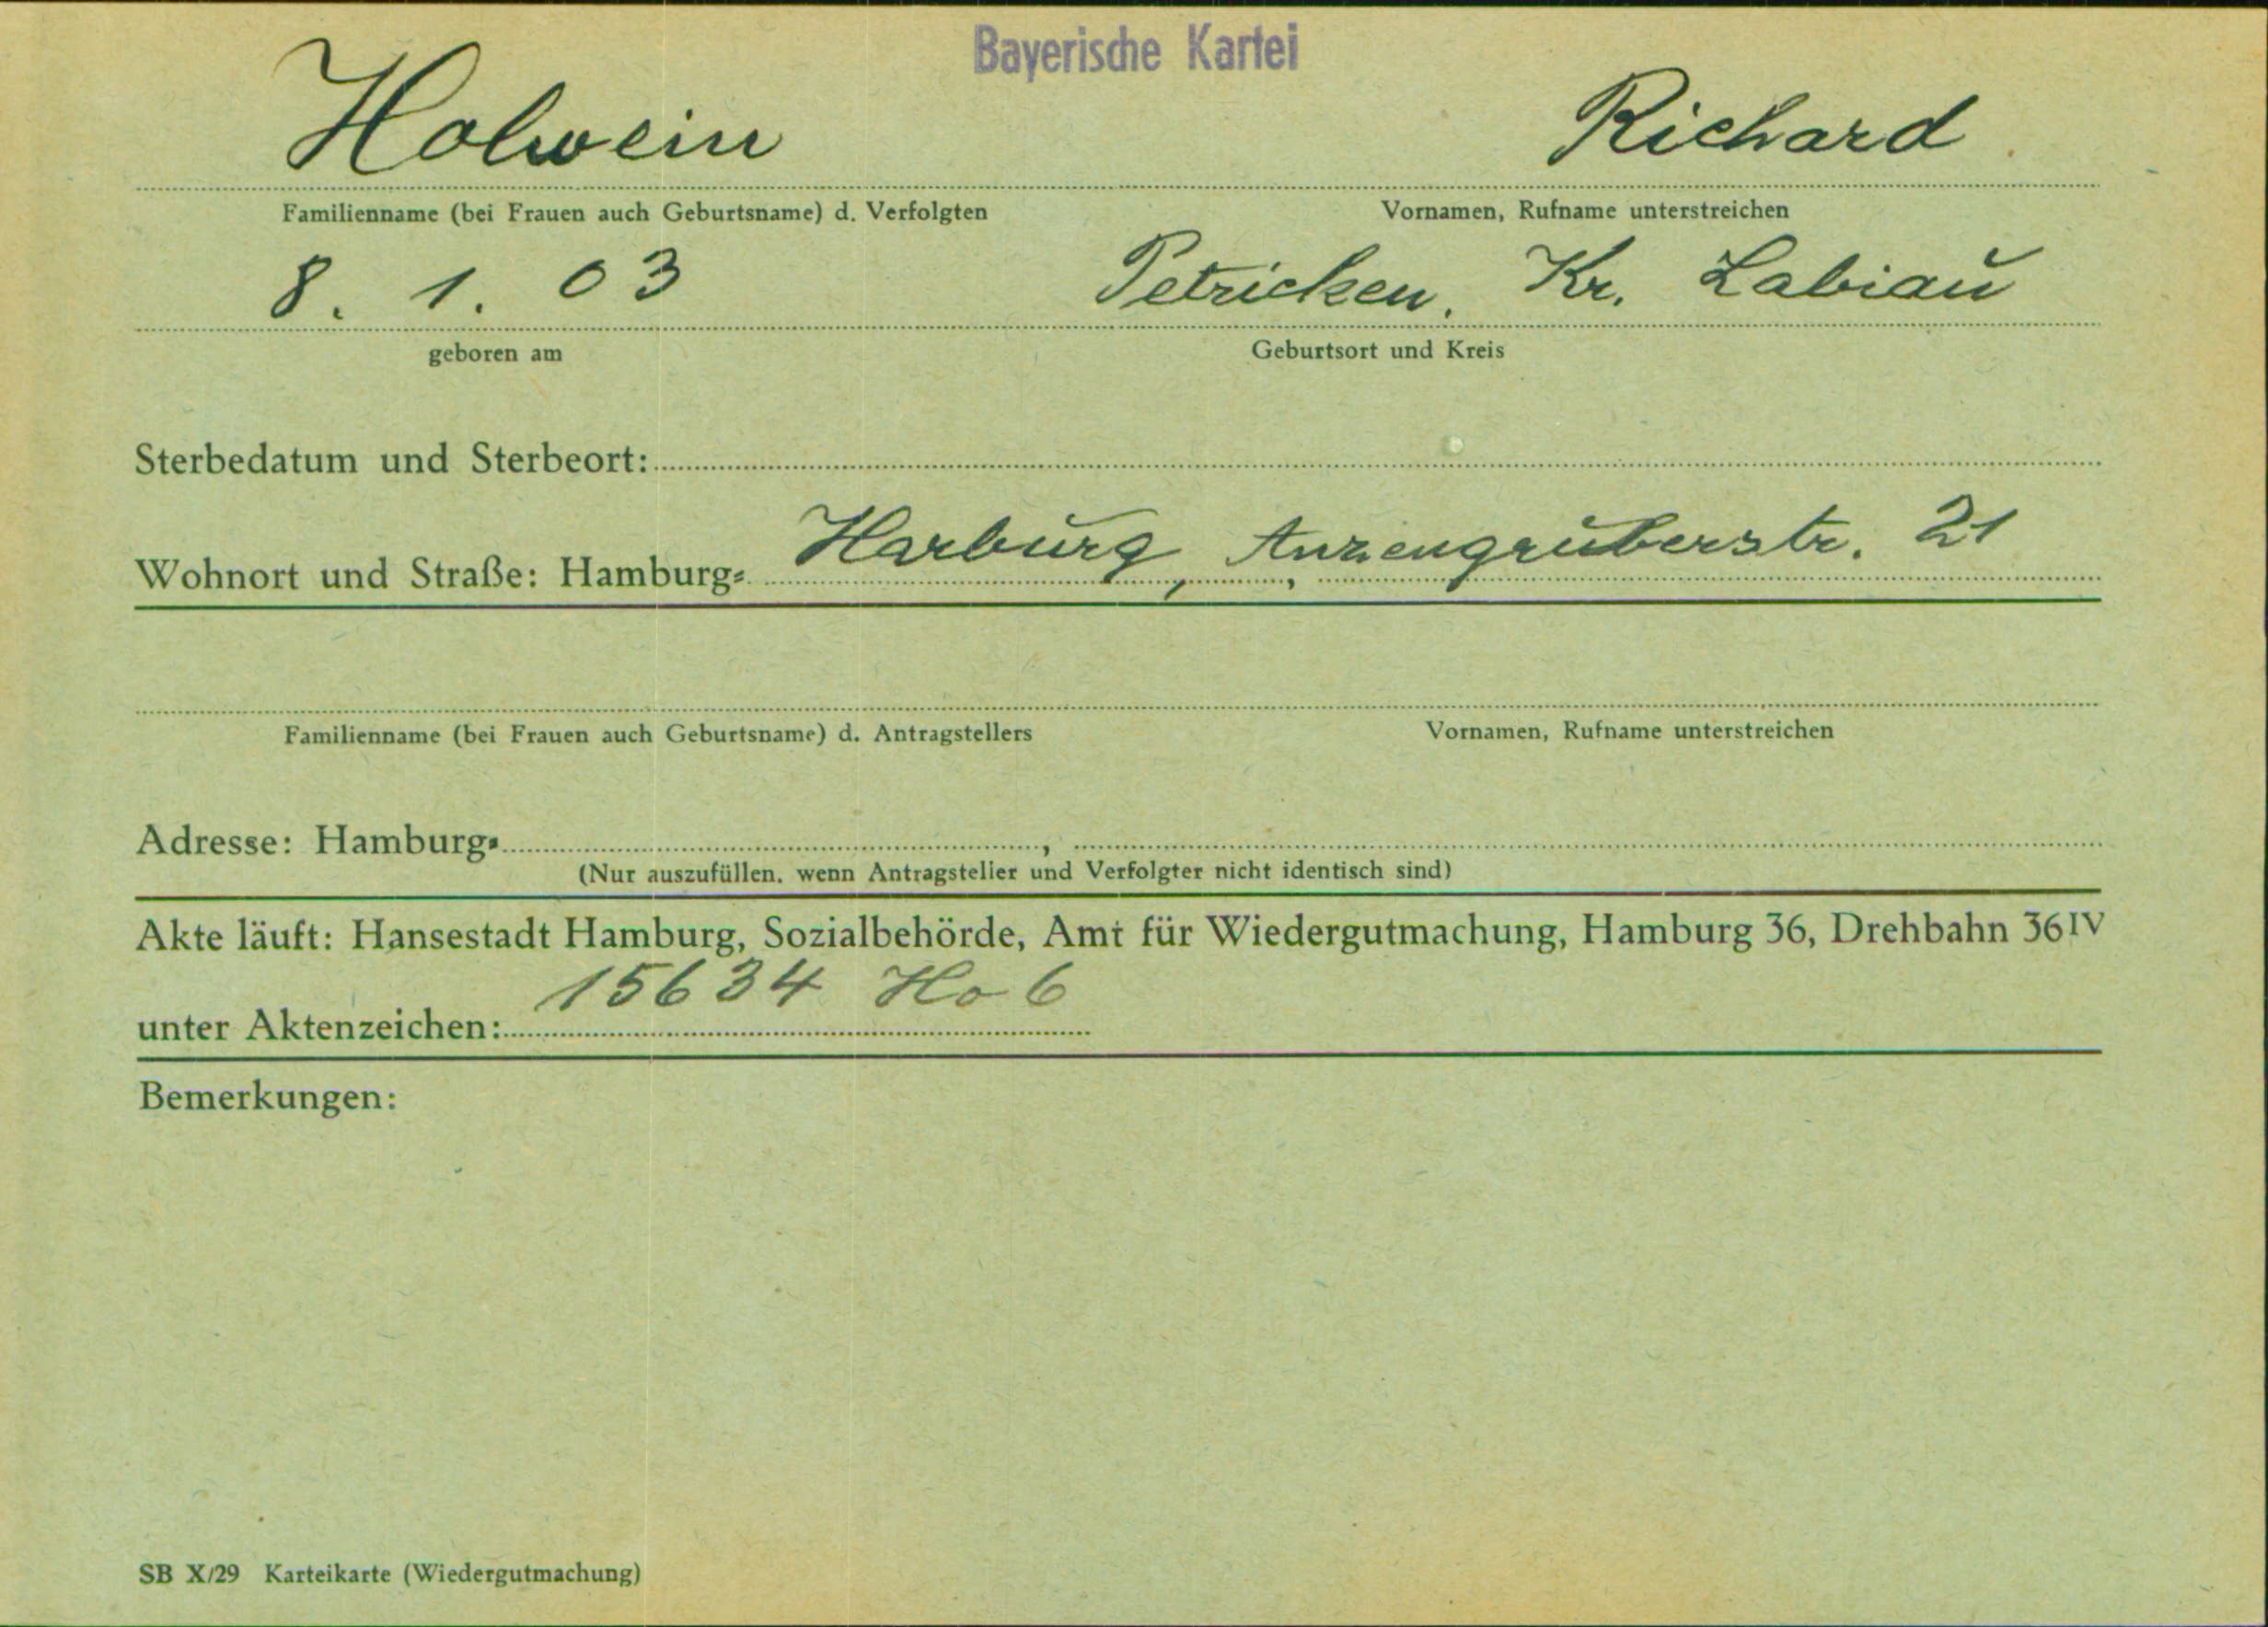 Bayerische Kartei
Holwein Richard
Familienname (bei Frauen auch Geburtsname) d. Verfolgten Vornamen, Rufname unterstreichen
8. 1. 03 Petricken, Kr. Labiau
geboren am Geburtsort und Kreis
Sterbedatum und Sterbeort:
Wohnort und Straße: Hamburg- Harburg, Anzengruberstr. 21
Familienname (bei Frauen auch Geburtsname) d. Antragstellers Vornamen, Rufname unterstreichen
Adresse: Hamburg- ,
(Nur auszufüllen, wenn Antragsteller und Verfolgter nicht identisch sind)
Akte läuft: Hansestadt Hamburg, Sozialbehörde, Amt für Wiedergutmachung, Hamburg 36, Drehbahn 36 IV
unter Aktenzeichen: 15634 Ho 6
Bemerkungen:
SB X/29 Karteikarte (Wiedergutmachung)